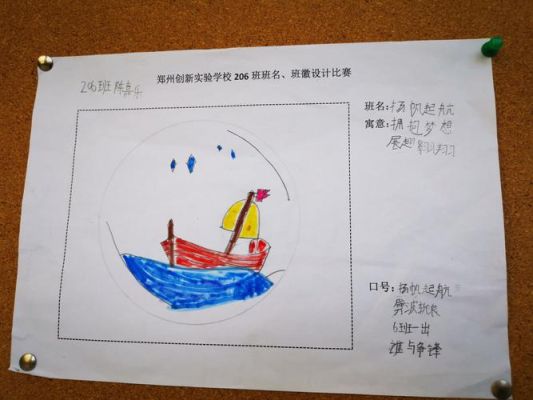 郑州创新实验学校 206 班班名、班徽设计比赛
206班 陈嘉乐
班名:扬帆起航
寓意:拥抱梦想
展翅
口号:扬帆起航
6班一出
谁与争锋